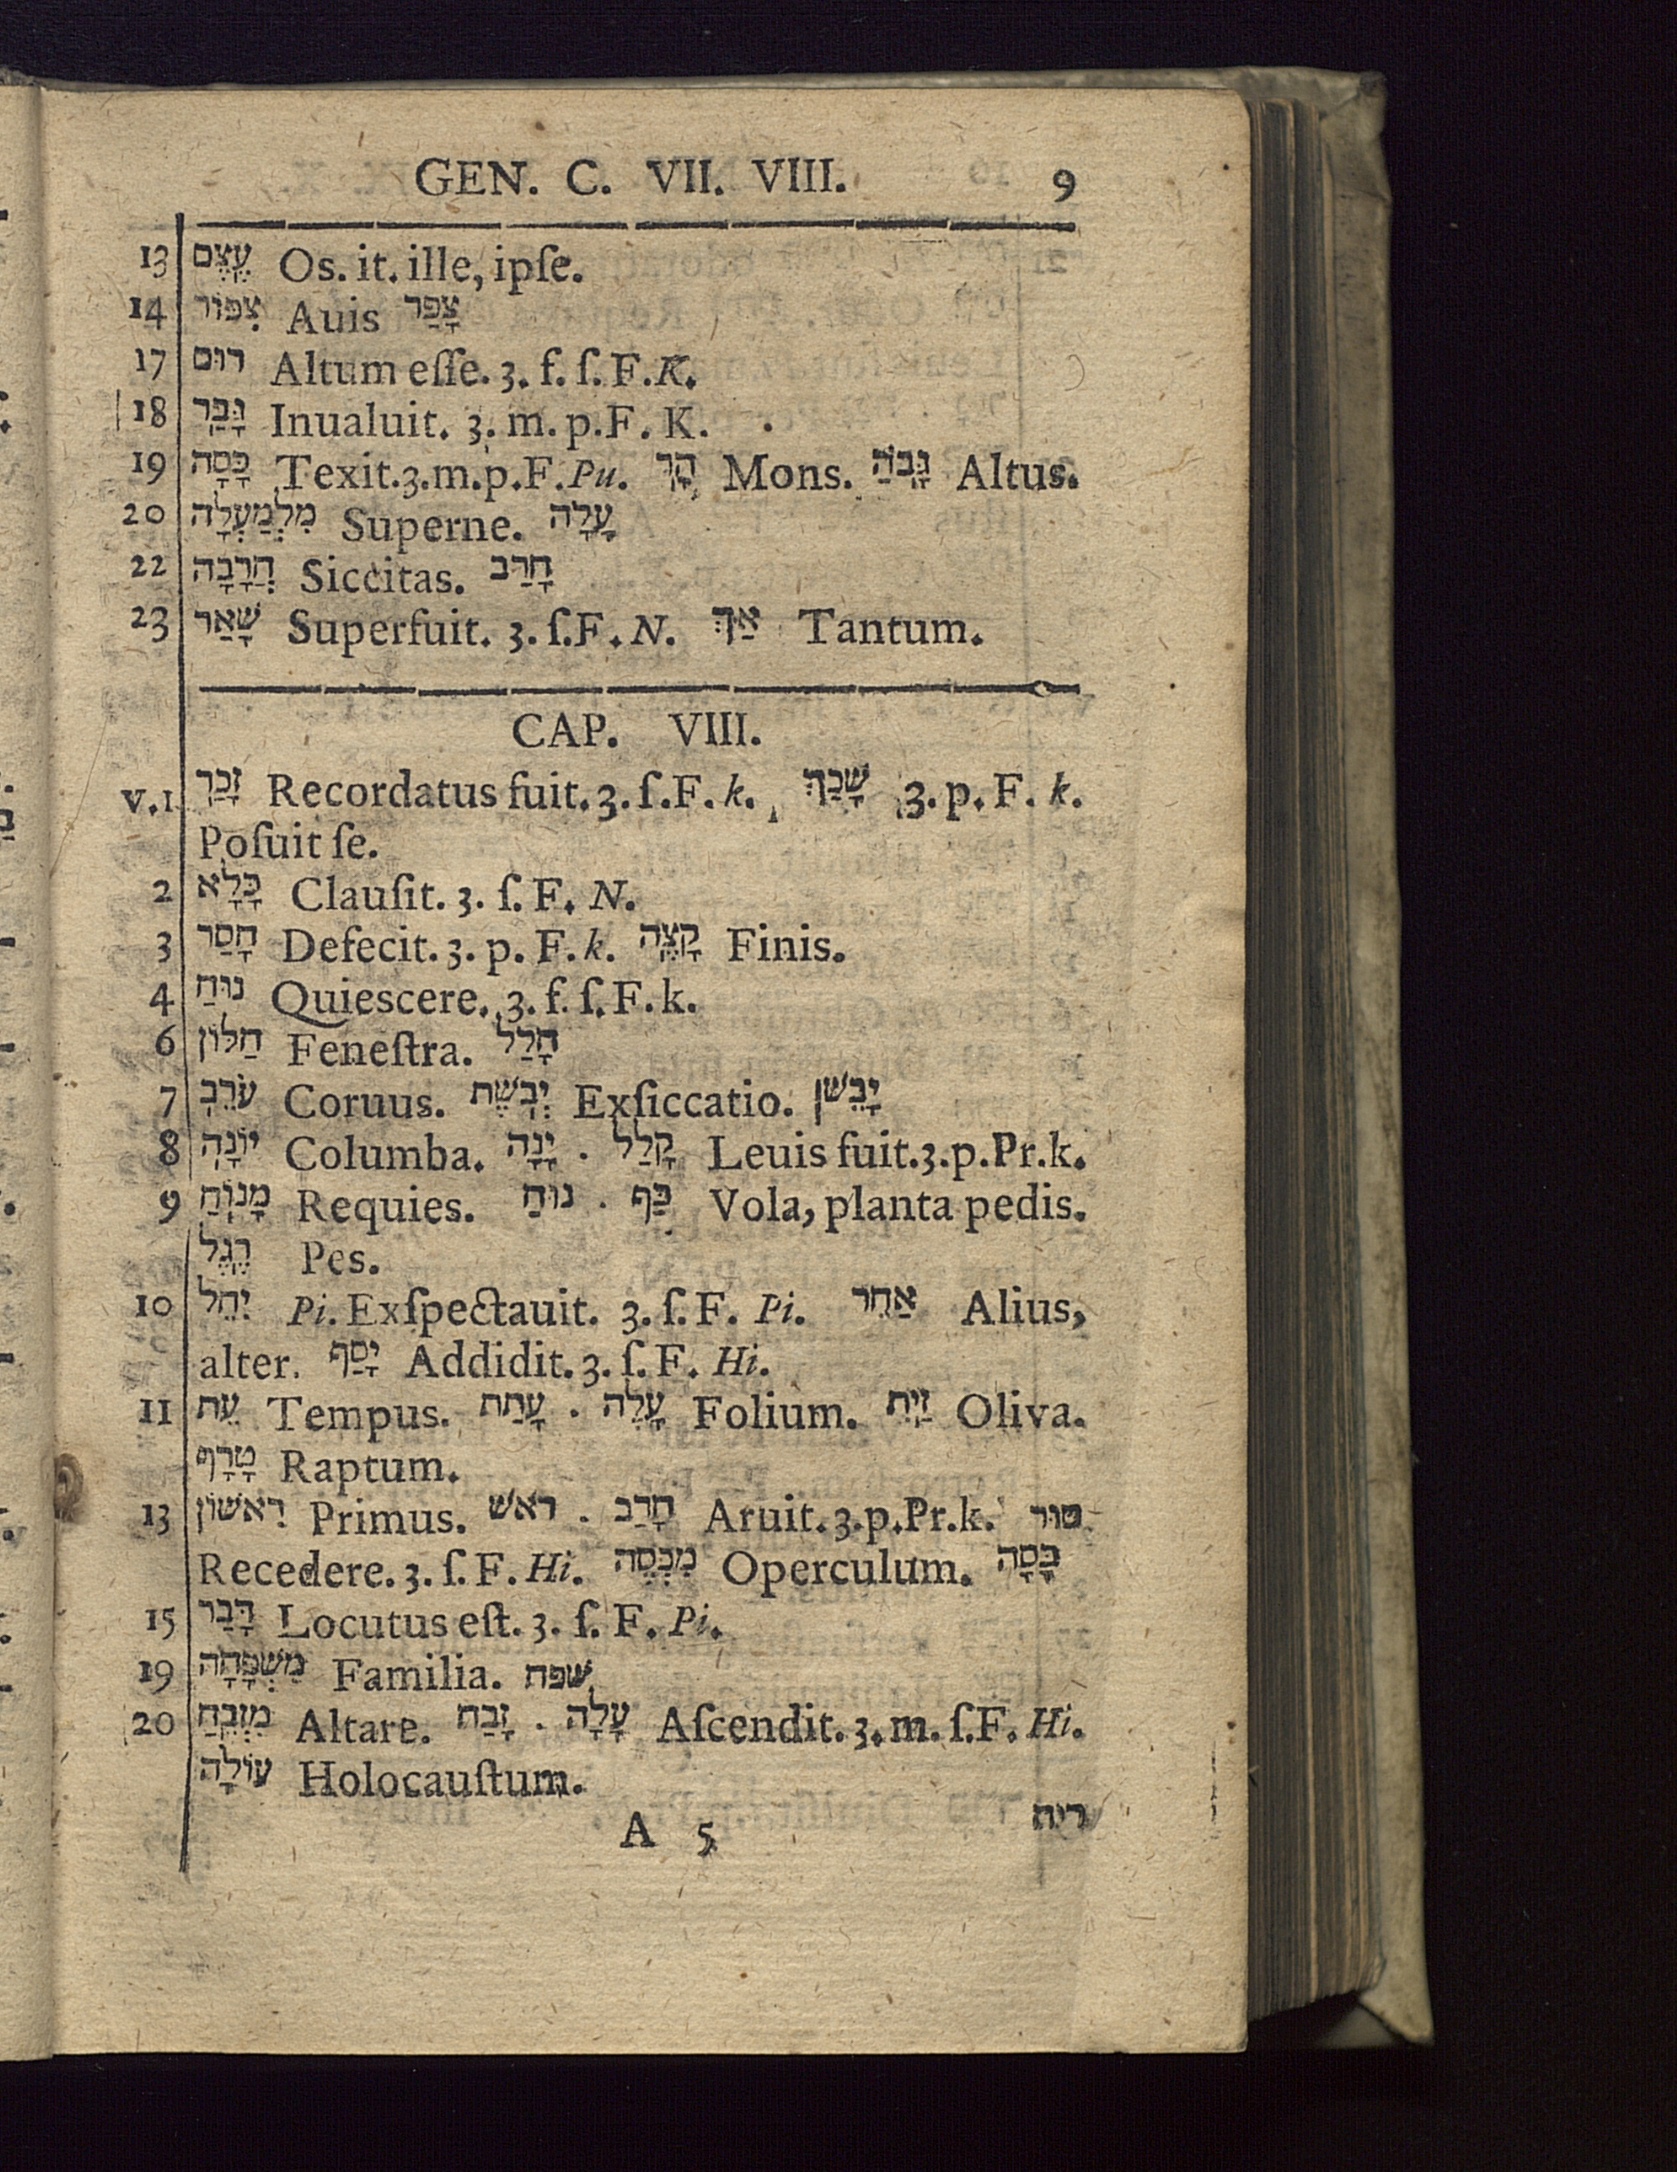 GEN. C. VII. VIII. 9
13 עֶצֶם Os. it. ille, ipſe.
14 צִפּוֹר Auis צָפַר
17 רוּם Altum eſſe. 3. f. ſ. F. K.
18 גָּבַר Inualuit. 3. m. p. F. K.
19 כָּסָה Texit. 3. m. p. F. Pu. הָר Mons. גָּבוֹהַּ Altus.
20 מִלְמַעְלָה Superne. עָלָה
22 חֲרָבָה Siccitas. חָרַב
23 שָׁאַר Superfuit. 3. ſ. F. N. אַךְ Tantum.
CAP. VIII.
V. 1 זָכַר Recordatus fuit. 3. ſ. F. k. שָׁכַךְ 3. p. F. k.
Poſuit ſe.
2 כָּלָא Clauſit. 3. ſ. F. N.
3 חָסַר Defecit. 3. p. F. k. קָצֶה Finis.
4 נוּחַ Quieſcere. 3. f. ſ. F. k.
6 חַלּוֹן Feneſtra. חָלַל
7 עֹרֵב Coruus. יְבֹשֶׁת Exſiccatio. יָבֵשׁ
8 יוֹנָה Columba. יָנָה . קָלַל Leuis fuit. 3. p. Pr. k.
9 מָנוֹחַ Requies. נוּחַ . כַּף Vola, planta pedis.
רֶגֶל Pes.
10 יִחֵל Pi. Exſpectauit. 3. ſ. F. Pi. אַחֵר Alius,
alter. יָסַף Addidit. 3. ſ. F. Hi.
11 עֵת Tempus. עָתַת . עָלֶה Folium. זַיִת Oliva.
טָרָף Raptum.
13 רִאשׁוֹן Primus. ראשׁ . חָרַב Aruit. 3. p. Pr. k. סוּר
Recedere. 3. ſ. F. Hi. מִכְסֶה Operculum. כָּסָה
15 דָּבַר Locutus eſt. 3. ſ. F. Pi.
19 מִשְׁפָּחָה Familia. שׁפח
20 מִזְבֵּחַ Altare. זָבַח . עָלָה Aſcendit. 3. m. ſ. F. Hi.
עוֹלָה Holocauſtum.
A 5 ריח